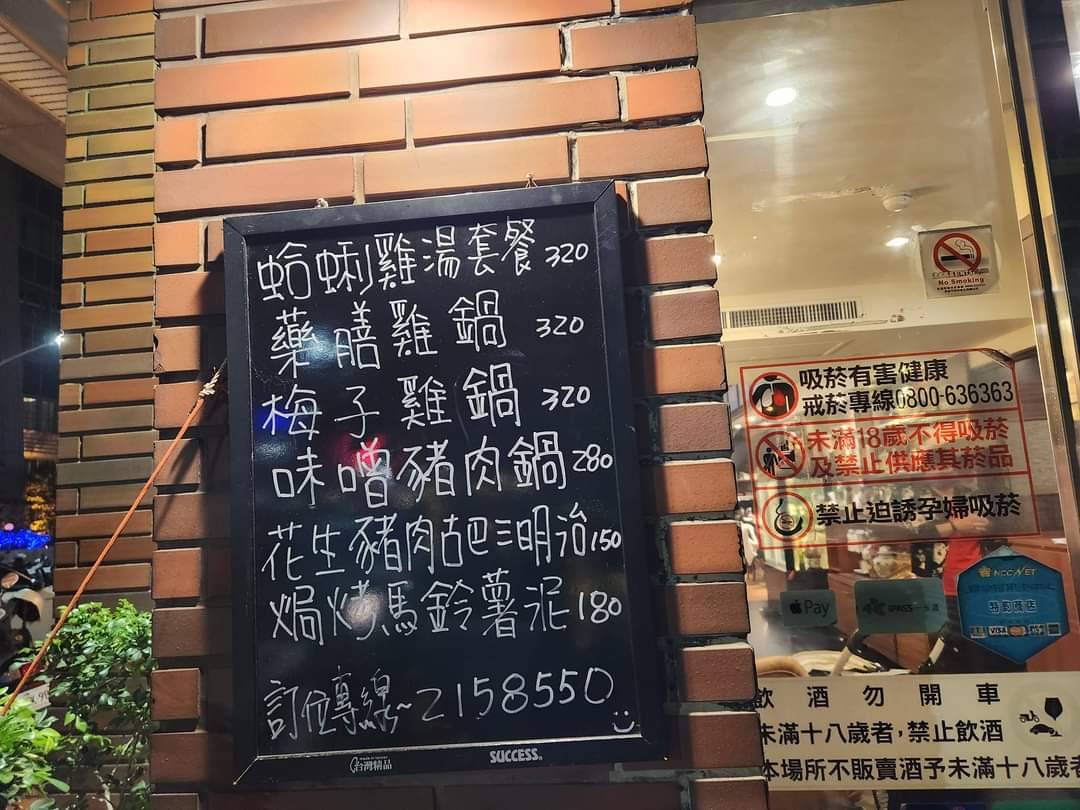 蛤蜊雞湯套餐 320
藥膳雞鍋 320
梅子雞鍋 320
味噌豬肉鍋 280
花生豬肉古巴三明治 150
焗烤馬鈴薯泥 180
訂位專線~2158550
台灣精品
SUCCESS
No Smoking
吸菸有害健康
戒菸專線0800-636363
未滿18歲不得吸菸
及禁止供應其菸品
禁止迫誘孕婦吸菸
Pay
iPASS一卡通
NCCNET
特約商店
VISA
飲酒勿開車
未滿十八歲者,禁止飲酒
本場所不販賣酒予未滿十八歲者